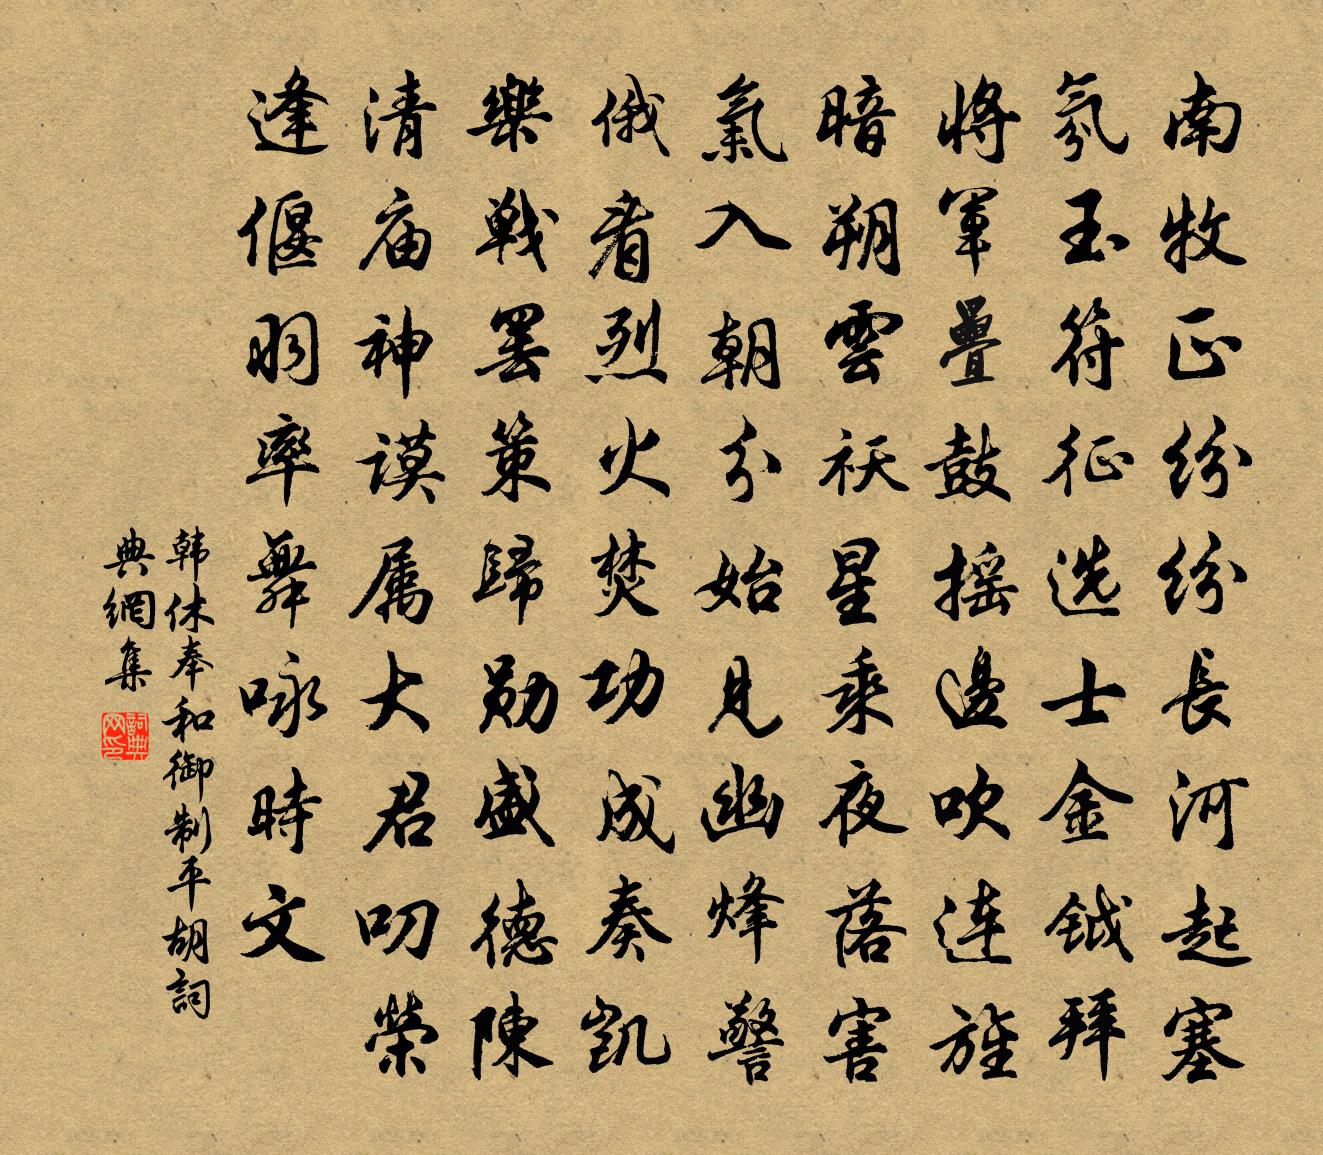 南牧正紛紛長河起塞
氛玉符征选士金鉞拜
將軍疊鼓摇邊吹连旌
暗朔雲祆星乘夜落害
氣入朝分始見幽烽警
俄看烈火焚功成奏凱
樂戰罢策歸勋盛德陳
清庙神谟属大君叨榮
逢偃羽率舞咏時文
韩休奉和御制平胡詞
典網集
詞典网印